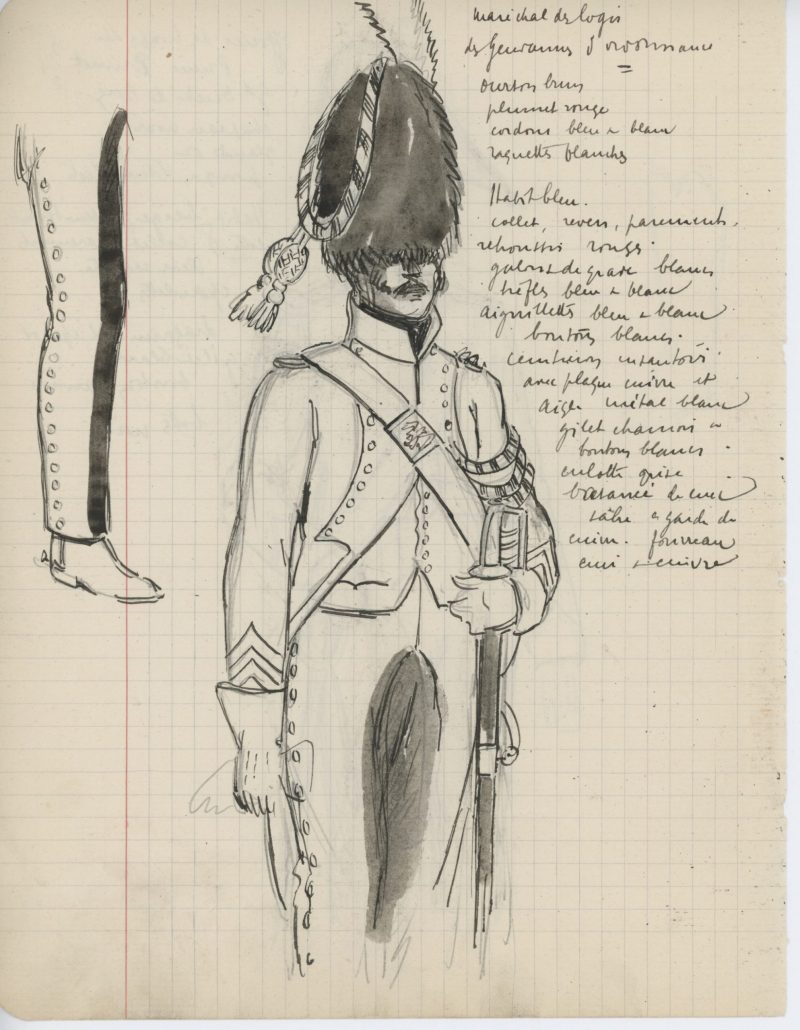 maréchal des logis
des Gendarmes d'ordonnance
ourson brun
plumet rouge
cordons bleu & blanc
raquettes blanches
Habit bleu.
collet, revers, parements,
retroussis rouges.
galons de grade blancs
trèfles bleu & blanc
aiguillettes bleu & blanc
boutons blancs.
ceinturons
avec plaque cuivre et
aigle métal blanc
gilet chamois &
boutons blancs.
culotte grise
basanée de cuir
sabre à garde de
cuivre. fourreau
cuir & cuivre